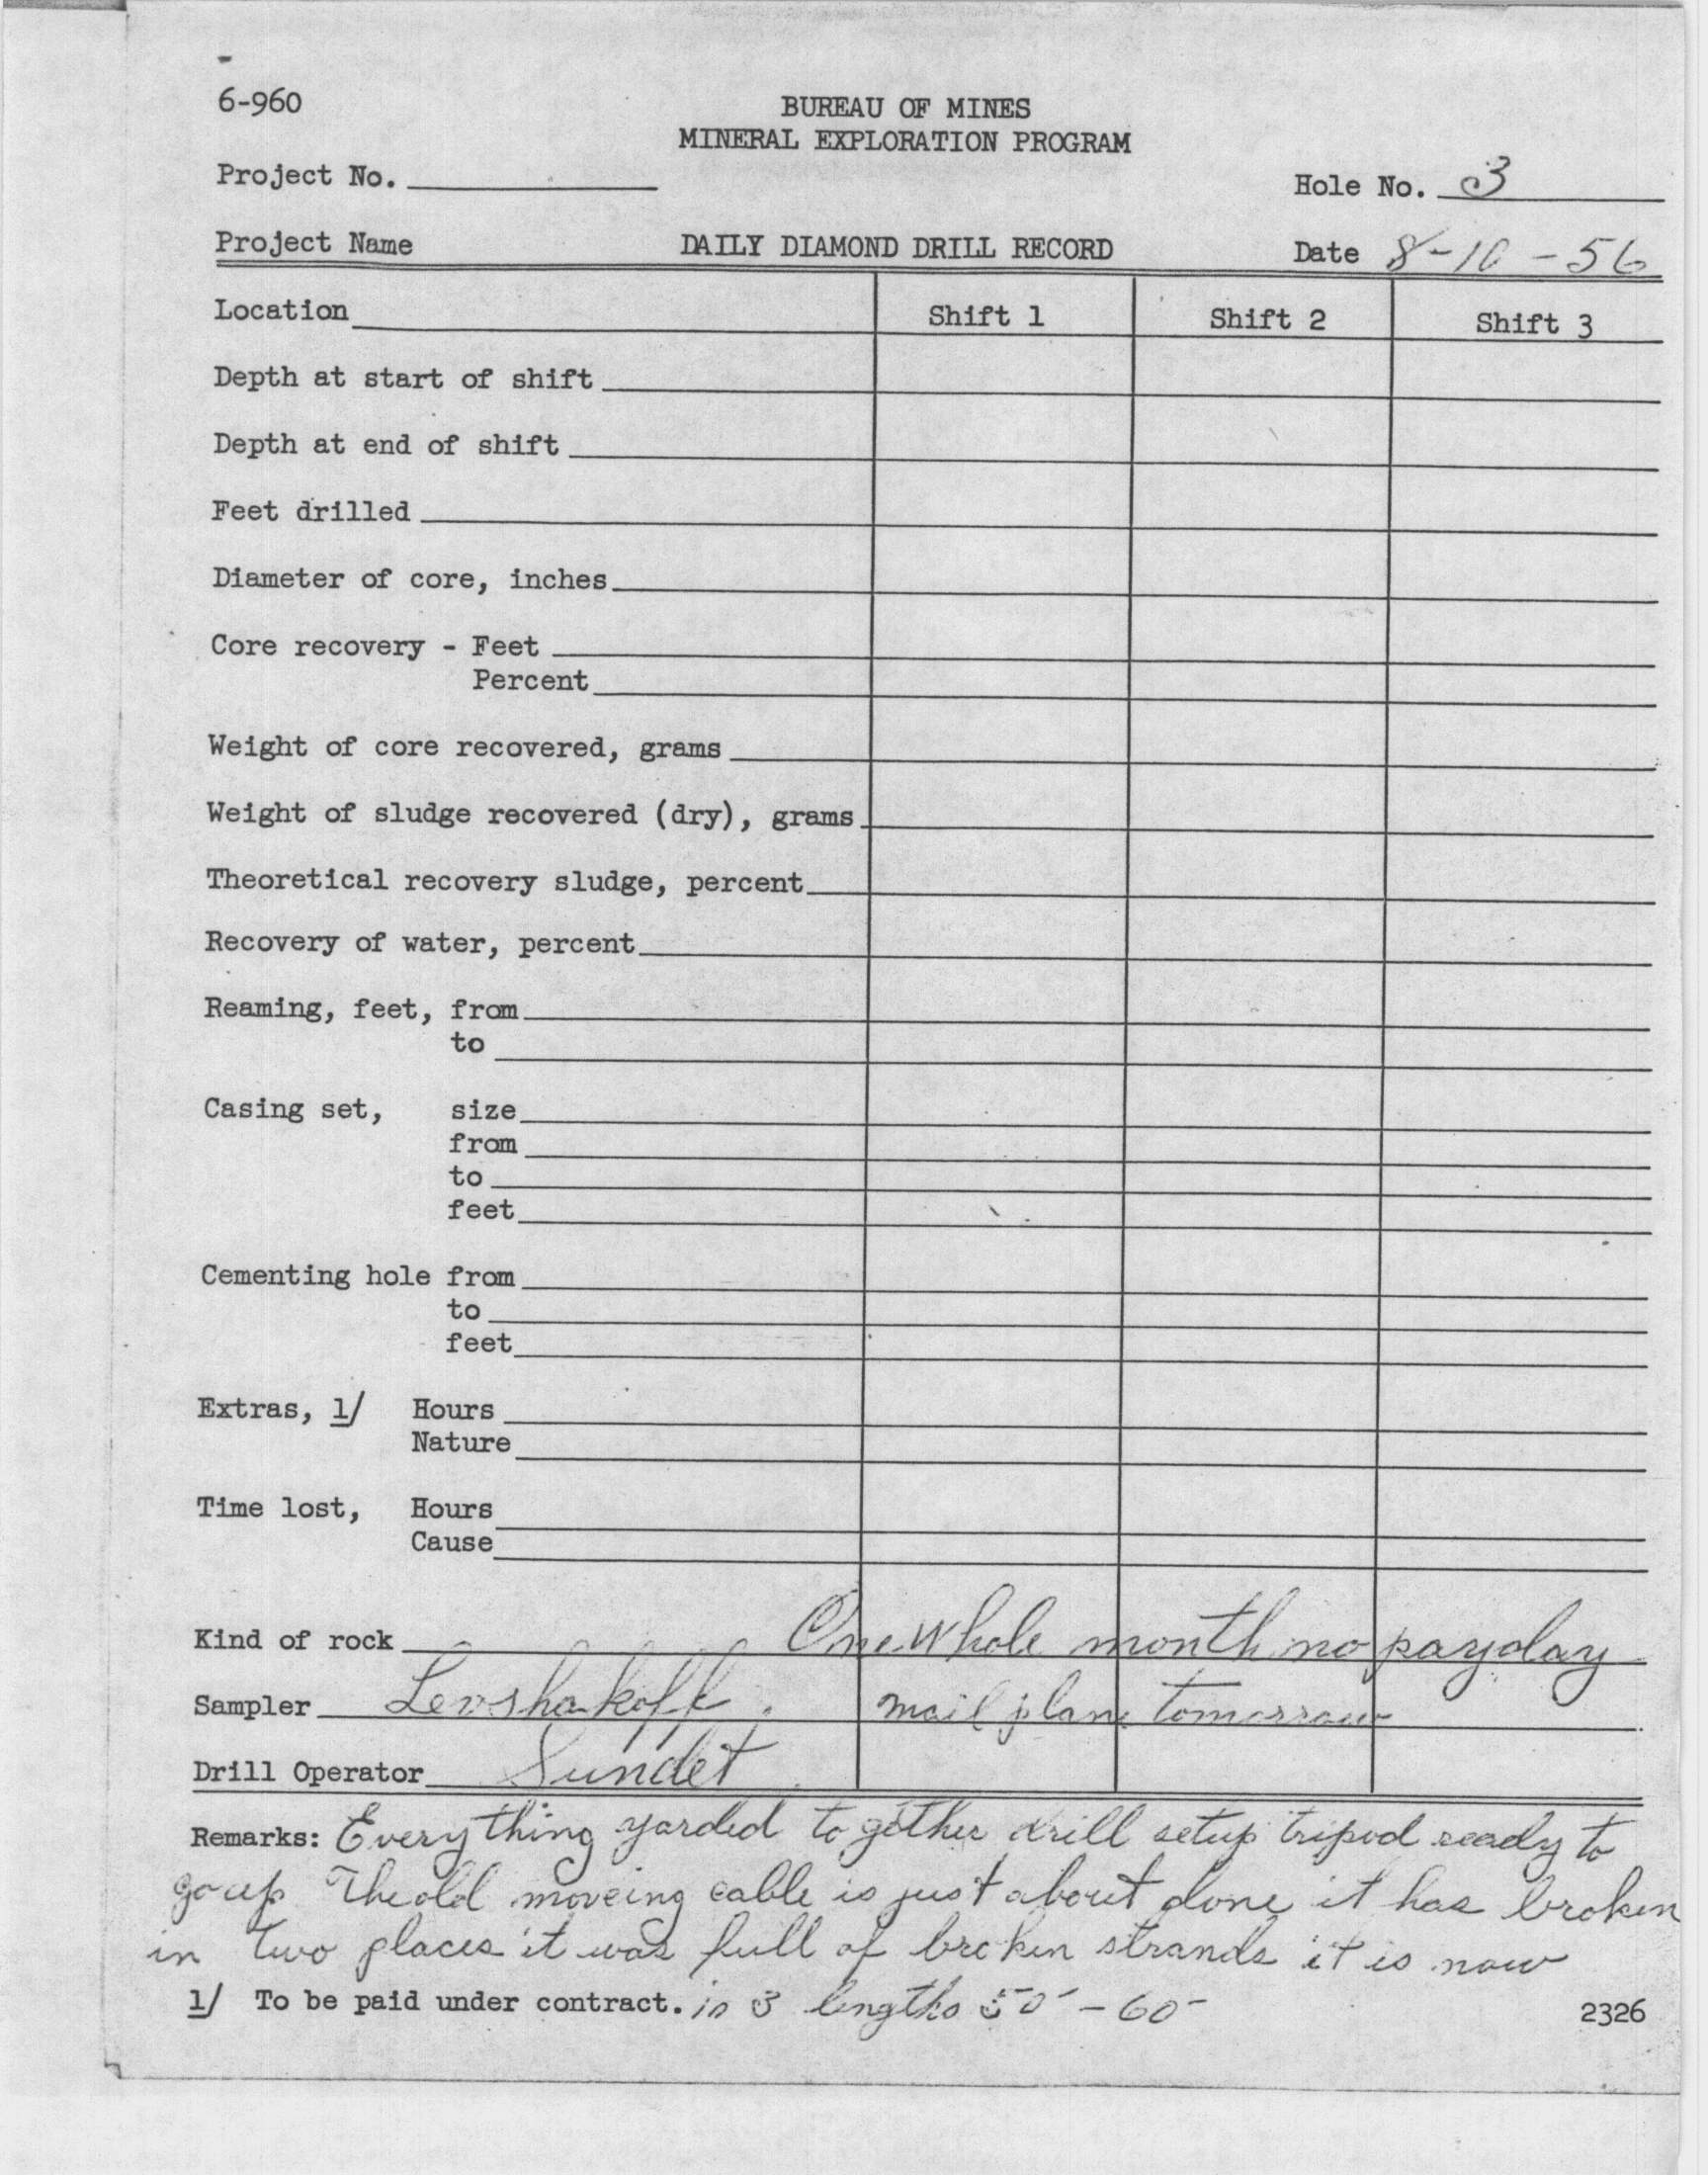 6-960
BUREAU OF MINES
MINERAL EXPLORATION PROGRAM
Project No.
Hole No. 3
Project Name DAILY DIAMOND DRILL RECORD Date 8-10-56
Location Shift 1 Shift 2 Shift 3
Depth at start of shift
Depth at end of shift
Feet drilled
Diameter of core, inches
Core recovery - Feet
Percent
Weight of core recovered, grams
Weight of sludge recovered (dry), grams
Theoretical recovery sludge, percent
Recovery of water, percent
Reaming, feet, from
to
Casing set, size
from
to
feet
Cementing hole from
to
feet
Extras, 1/ Hours
Nature
Time lost, Hours
Cause
Kind of rock One whole month no payday
Sampler Levshakoff mail plane tomorrow
Drill Operator Sundet
Remarks: Everything yarded together drill setup tripod ready to
go up The old moveing cable is just about done it has broken
in two places it was full of broken strands it is now
1/ To be paid under contract. in 3 lengths 50' - 60'
2326